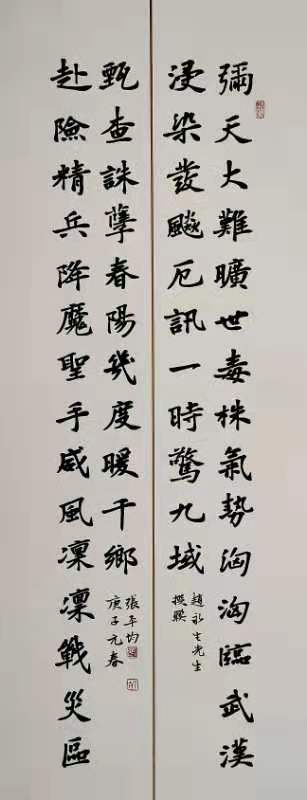 彌天大難曠世毒株氣勢洶洶臨武漢
浸染發飈厄訊一時驚九域
趙永生先生
撰聯
赴險精兵降魔聖手威風凜凜戰災區
甄查誅孽春陽幾度暖千鄉
張平均
庚子元春